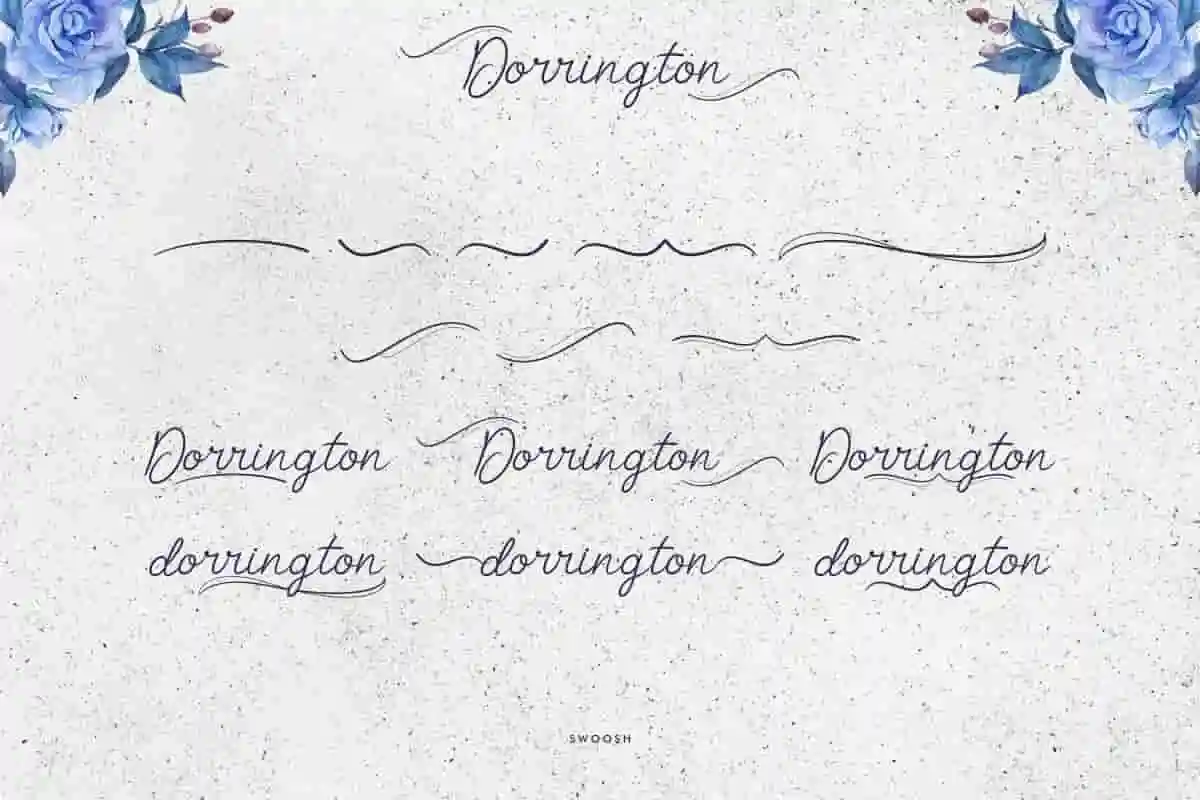 Dorrington
Dorrington Dorrington Dorrington
dorrington dorrington dorrington
SWOOSH